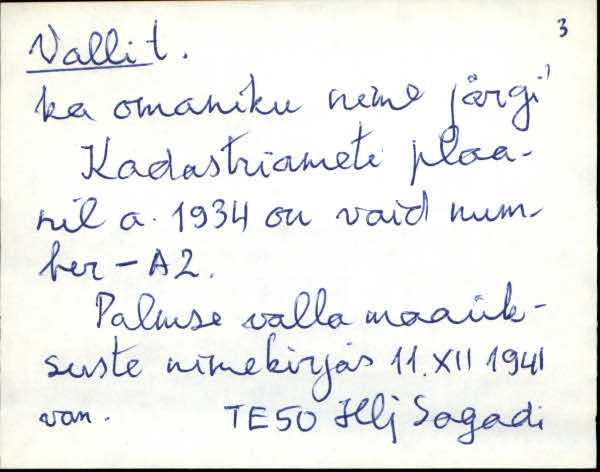 3
Vallit.
ka omaniku nime järgi
Kadastriameti plaa-
nil a. 1934 on vaid num-
ber - A2.
Palmse valla maaük-
suste nimekirjas 11. XII 1941
van. TE50 Hlj Sagadi